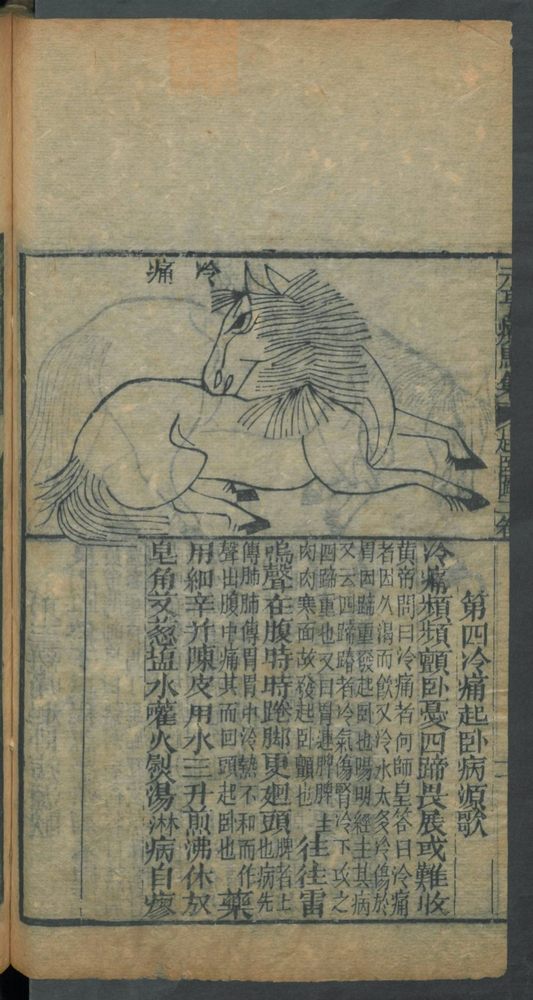 冷痛
元亨療馬集 起卧圖 卷
第四冷痛起卧病源歌
冷痛頻頻顫卧憂四蹄畏展或難收
黄帝問曰冷痛者何師皇答曰冷痛
者因久渴而飲又冷水太多冷傷於
胃因蹄重發起卧也陽明經主其病
又云四蹄蹐者冷氣傷腎冷下攻之
四蹄重也又曰胃連脾脾主
肉肉寒面故發起卧顫也往往雷
鳴聲在腹時時跑脚更廻頭脾者上
也病先
傳肺肺傳胃胃中冷熱不和而作
聲出腹中痛其而回頭起卧也藥
用細辛并陳皮用水三升煎沸休放
皂角艾葱塩水嚾火熨湯淋病自瘳